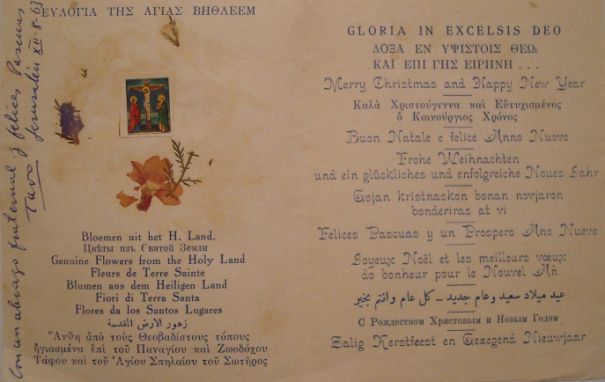 Con un abrazo fraternal y felices Pascuas
Jerusalén XII-8-63
ΕΥΛΟΓΙΑ ΤΗΣ ΑΓΙΑΣ ΒΗΘΛΕΕΜ
Bloemen uit het H. Land.
Цвѣты изъ Святой Земли
Genuine Flowers from the Holy Land
Fleurs de Terre Sainte
Blumen aus dem Heiligen Land
Fiori di Terra Santa
Flores da los Santos Lugares
زهور الارض المقدسة
Ἄνθη ἀπὸ τοὺς Θεοβαδίστους τόπους
ἡγιασμένα ἐπὶ τοῦ Παναγίου καὶ Ζωοδόχου
Τάφου καὶ τοῦ Ἁγίου Σπηλαίου τοῦ Σωτῆρος
GLORIA IN EXCELSIS DEO
ΔΟΞΑ ΕΝ ΥΨΙΣΤΟΙΣ ΘΕΩ
ΚΑΙ ΕΠΙ ΓΗΣ ΕΙΡΗΝΗ . . .
Merry Christmas and Happy New Year
Καλὰ Χριστούγεννα καὶ Εὐτυχισμένος
ὁ Καινούργιος Χρόνος
Buon Natale e felice Anno Nuovo
Frohe Weihnachten
und ein glückliches und enfolgreiche Noues Jahr
Gojan kristnaskon bonan novjaron
bonderiras at vi
Felices Pascuas y un Prospero Ano Nuevo
Joyeux Noël et les meilleurs vœux
do bonheur pour le Nouvel An
عيد ميلاد سعيد وعام جديد — كل عام وانتم بخير
С Рождеством Христовым и Новым Годом
Zalig Kerstfeest en Gezegend Nieuwjaar